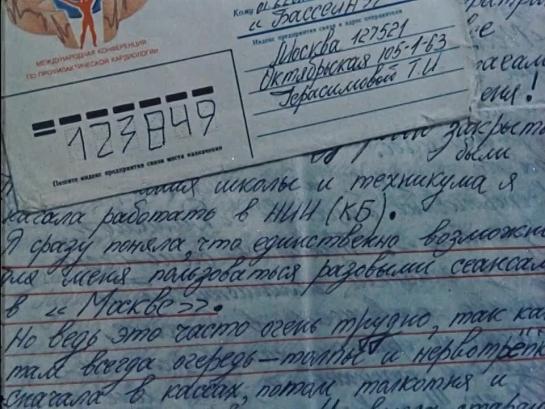 МЕЖДУНАРОДНАЯ КОНФЕРЕНЦИЯ
ПО ПРОФИЛАКТИЧЕСКОЙ КАРДИОЛОГИИ
Кому
и "Бассейн"
Индекс предприятия связи и адрес отправителя
Москва 127521
Октябрьская 105-1-63
Герасимовой Т.И
123849
Пишите индекс предприятия связи места назначения
закрыты
были
школы и техникума я
работать в НИИ (КБ).
Я сразу поняла, что единственно возможно
для меня пользоваться разовыми сеансам
в «Москве».
Но ведь это часто очень трудно, так ка
там всегда очередь—толпы и нервотрёпк
сначала в кассах, потом толкотня и